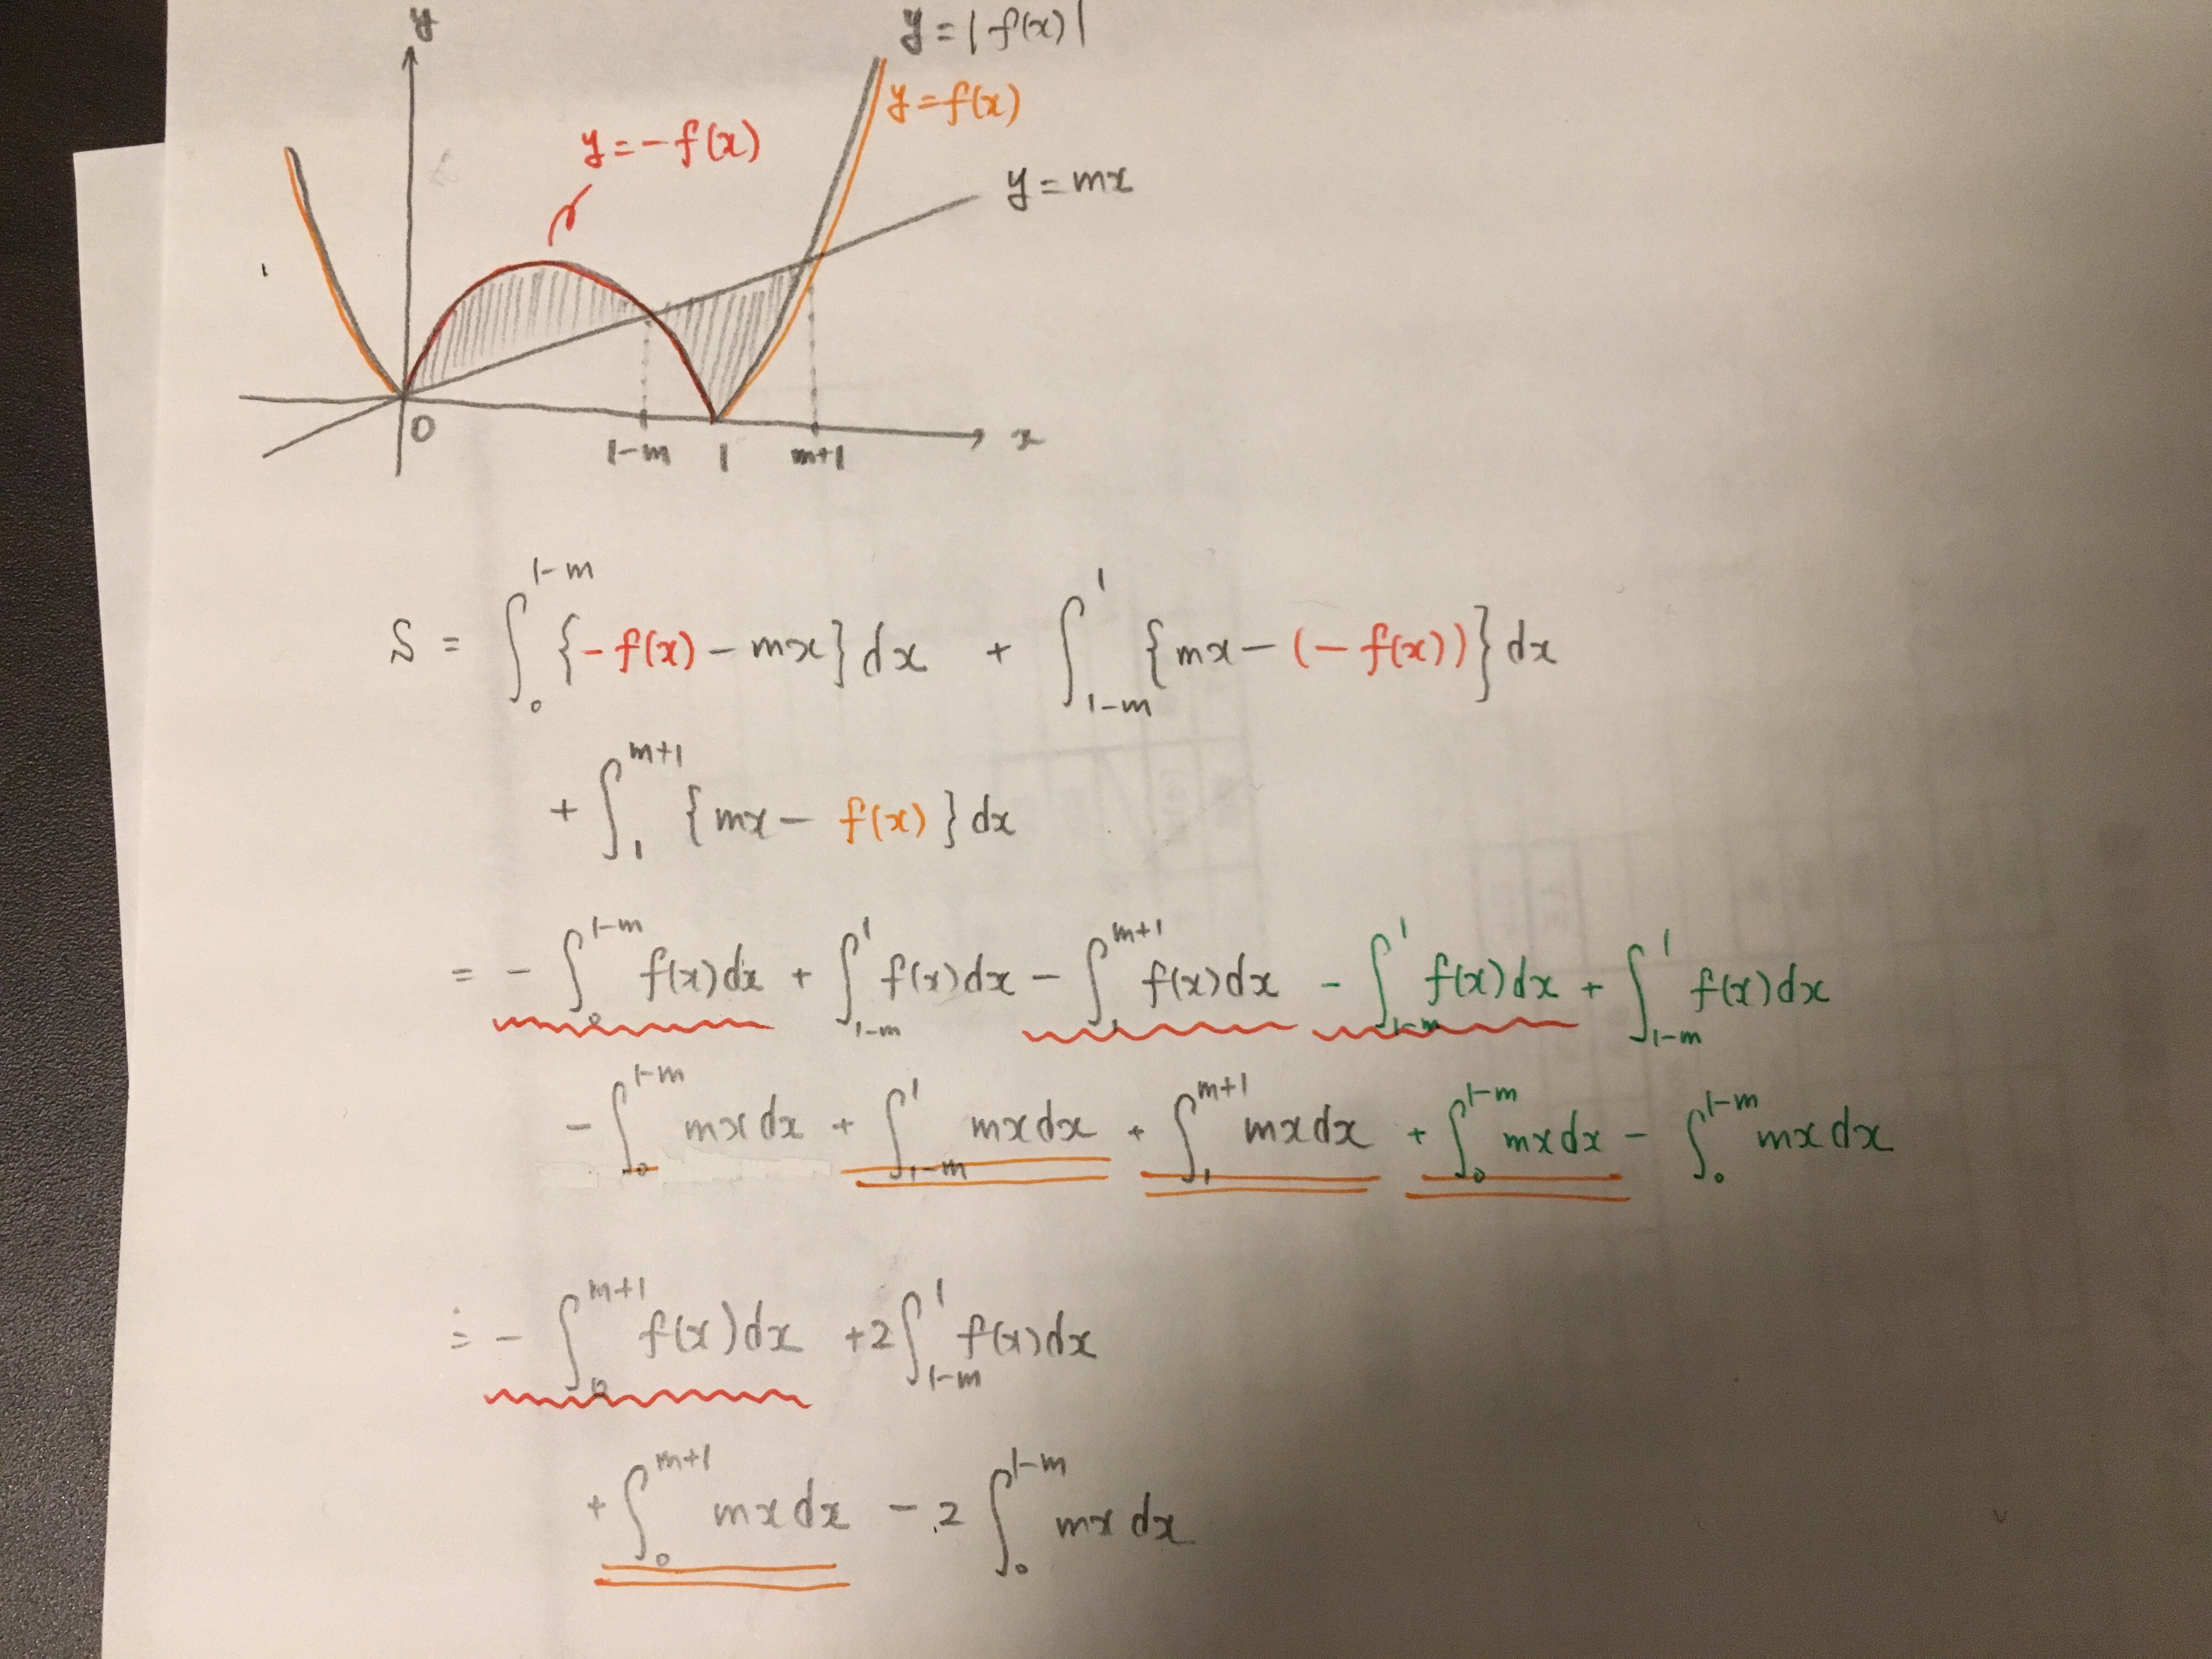 y
y = |f(x)|
y = f(x)
y = -f(x)
y = mx
0 1-m 1 m+1 x
S = ∫₀^{1-m} {-f(x) - mx} dx + ∫_{1-m}^{1} {mx - (-f(x))} dx
+ ∫₁^{m+1} {mx - f(x)} dx
= - ∫₀^{1-m} f(x)dx + ∫_{1-m}^{1} f(x)dx - ∫₁^{m+1} f(x)dx - ∫_{1-m}^{1} f(x)dx + ∫_{1-m}^{1} f(x)dx
- ∫₀^{1-m} mx dx + ∫_{1-m}^{1} mx dx + ∫₁^{m+1} mx dx + ∫₀^{1-m} mx dx - ∫₀^{1-m} mx dx
= - ∫₀^{m+1} f(x)dx + 2∫_{1-m}^{1} f(x)dx
+ ∫₀^{m+1} mx dx - 2 ∫₀^{1-m} mx dx